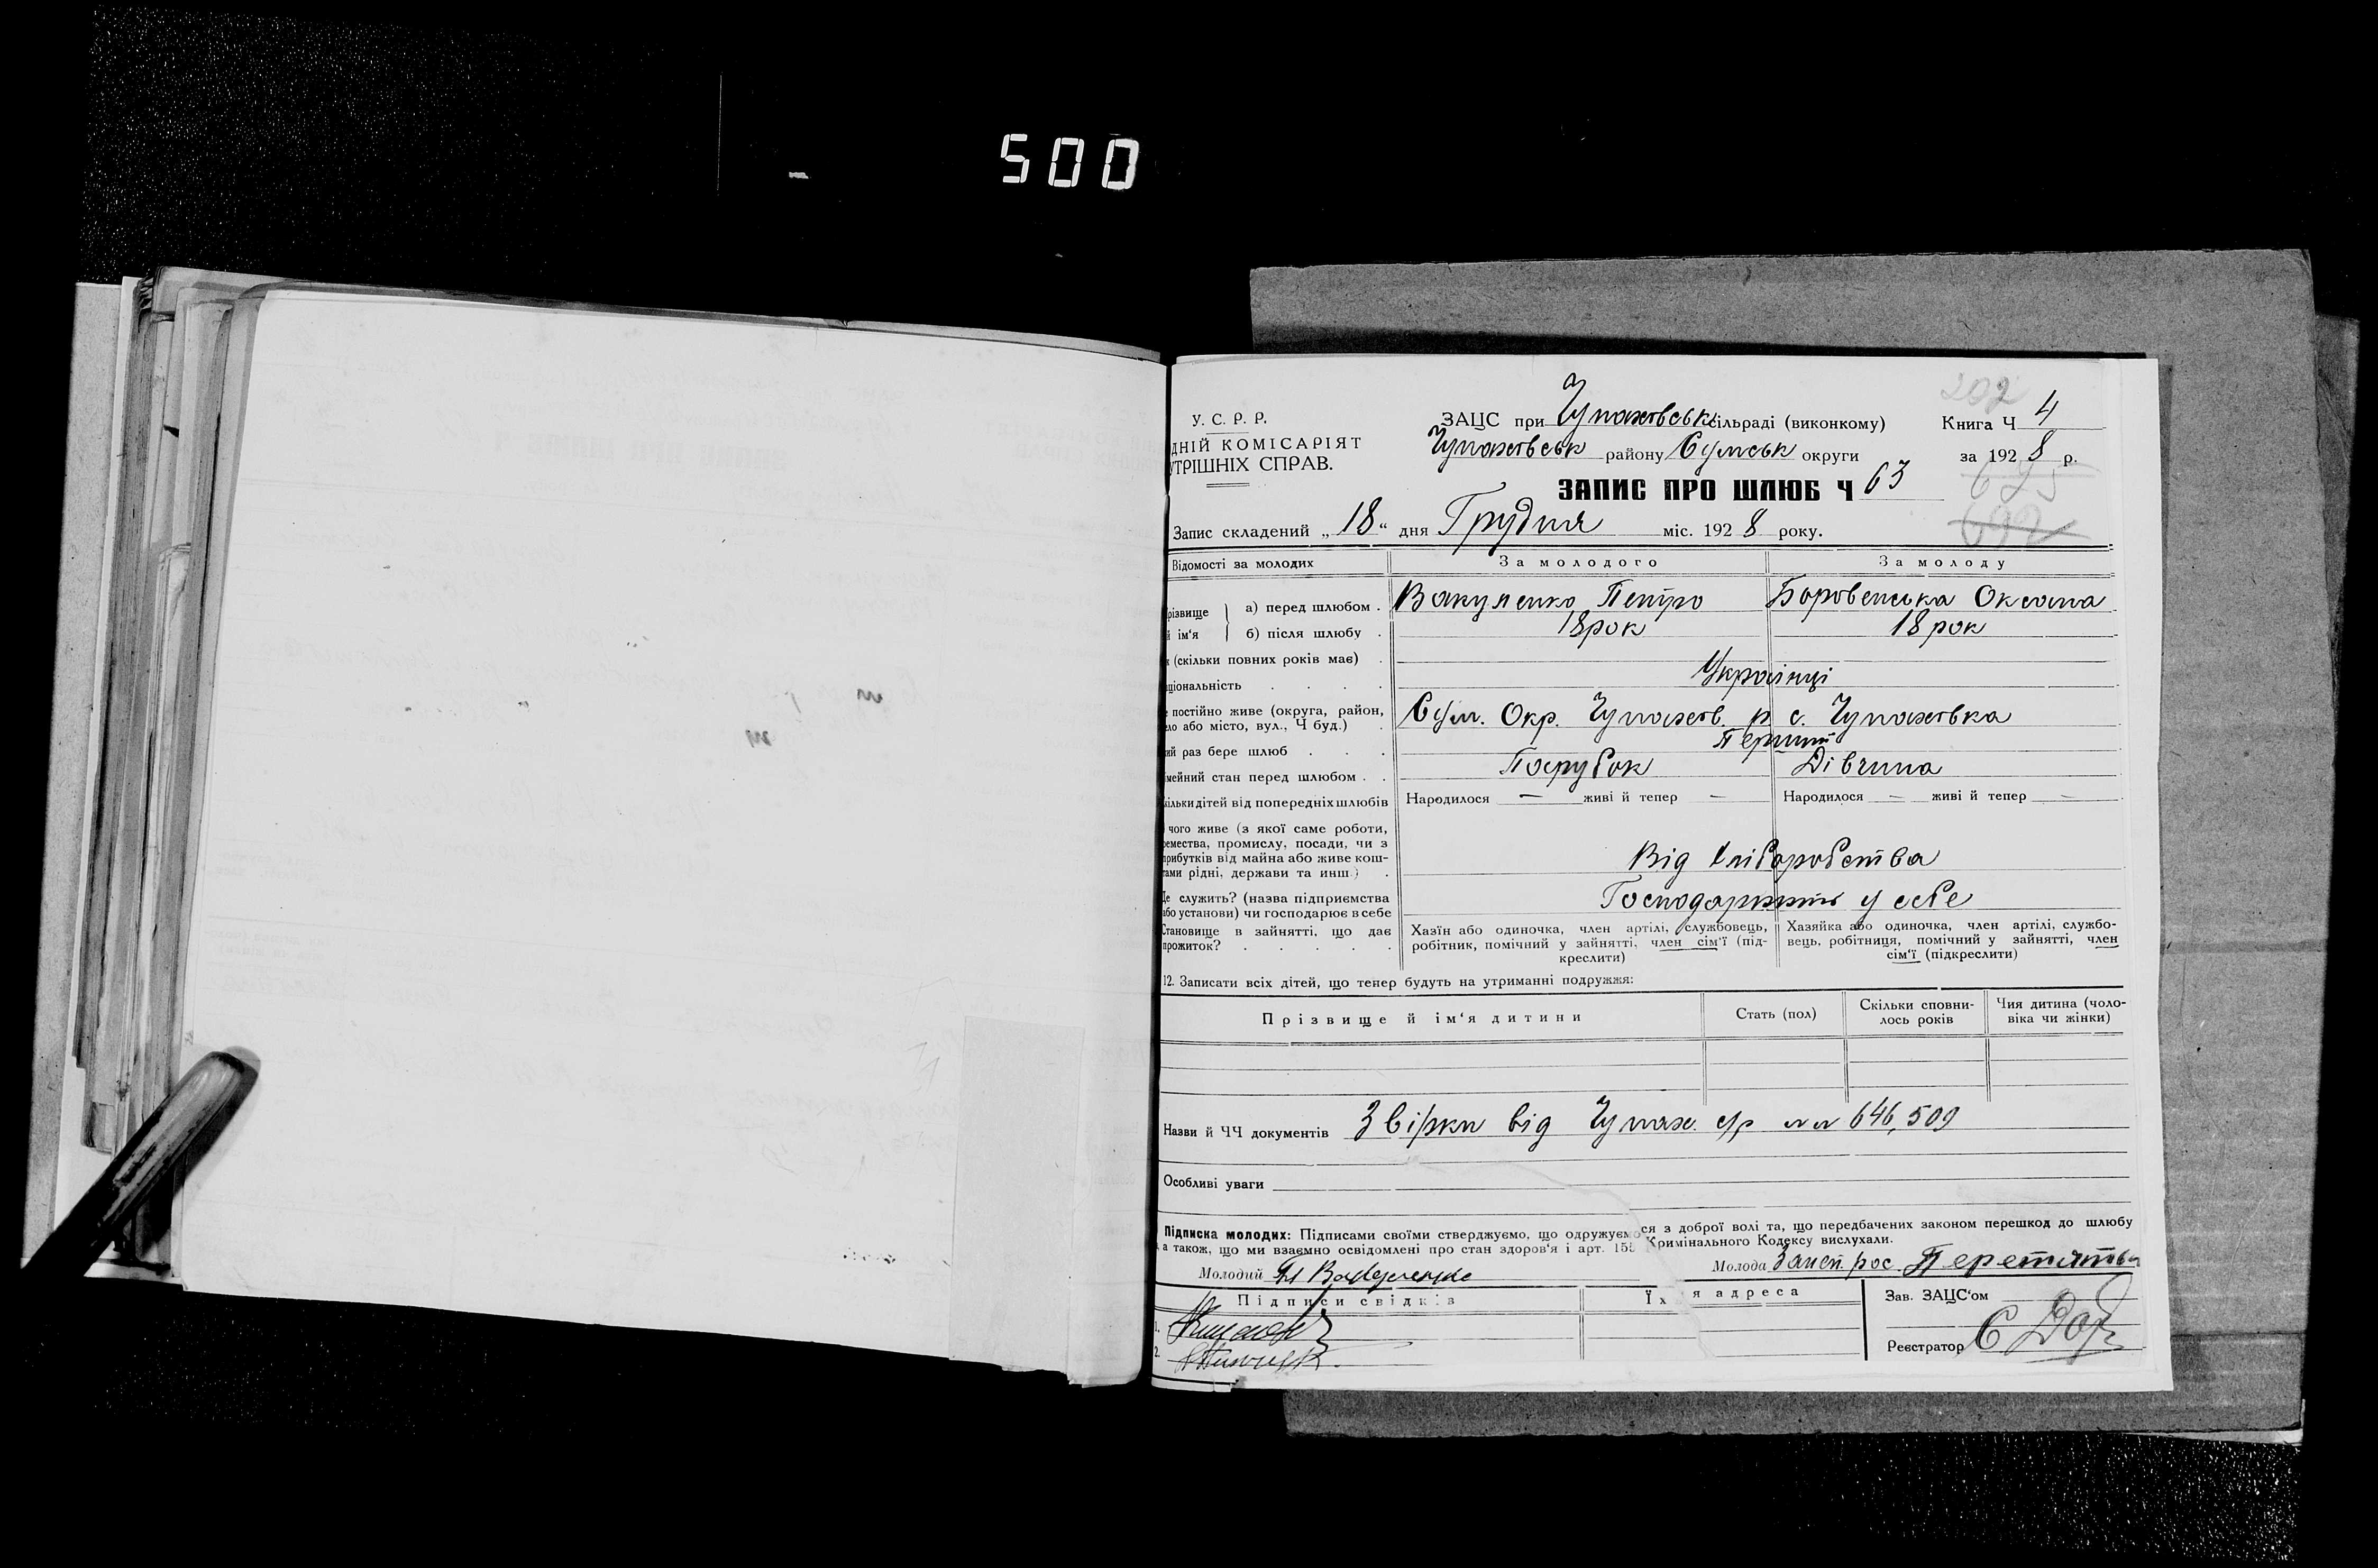 500
202
У. С. Р. Р.
ДНІЙ КОМІСАРІЯТ
УТРІШНІХ СПРАВ.
ЗАЦС при Чупахівськ сільраді (виконкому)
Чупахівськ району Сумськ округи
Книга Ч 4
за 1928 р.
ЗАПИС ПРО ШЛЮБ Ч 63
625
692
Запис складений „18“ дня Грудня міс. 1928 року.
Відомості за молодих За молодого За молоду
різвище й ім‘я
а) перед шлюбом . Вакуленко Петро Боровенська Оксана
б) після шлюбу . 18 рок 18 рок
к (скільки повних років має) .
ціональність . . . . Українці
е постійно живе (округа, район,
ело або місто, вул., Ч буд.) . Сум. Окр. Чупахів. р. с. Чупахівка
ий раз бере шлюб . . . Перший
імейний стан перед шлюбом . . Парубок Дівчина
кільки дітей від попередніх шлюбів Народилося — живі й тепер — Народилося — живі й тепер —
чого живе (з якої саме роботи,
ремества, промислу, посади, чи з
прибутків від майна або живе кош-
тами рідні, держави та инш.) . Від хліборобства
Де служить? (назва підприємства
або установи) чи господарює в себе Господарюють у себе
Становище в зайнятті, що дає
прожиток? . . . . .
Хазїн або одиночка, член артілі, службовець,
робітник, помічний у зайнятті, член сім‘ї (під-
креслити)
Хазяйка або одиночка, член артілі, службо-
вець, робітниця, помічний у зайнятті, член
сім‘ї (підкреслити)
12. Записати всіх дітей, що тепер будуть на утриманні подружжя:
Прізвище й ім‘я дитини Стать (пол) Скільки сповни-
лось років Чия дитина (чоло-
віка чи жінки)
Назви й ЧЧ документів Звірки від Чупах. с/р №№ 646, 509
Особливі уваги
Підписка молодих: Підписами своїми стверджуємо, що одружуємо ся з доброї волі та, що передбачених законом перешкод до шлюбу
а також, що ми взаємно освідомлені про стан здоров‘я і арт. 155 Кримінального Кодексу вислухали.
Молодий П Вакуленко Молода
Підписи свідків Їх я адреса
Зав. ЗАЦС‘ом
1.
2.
Реєстратор